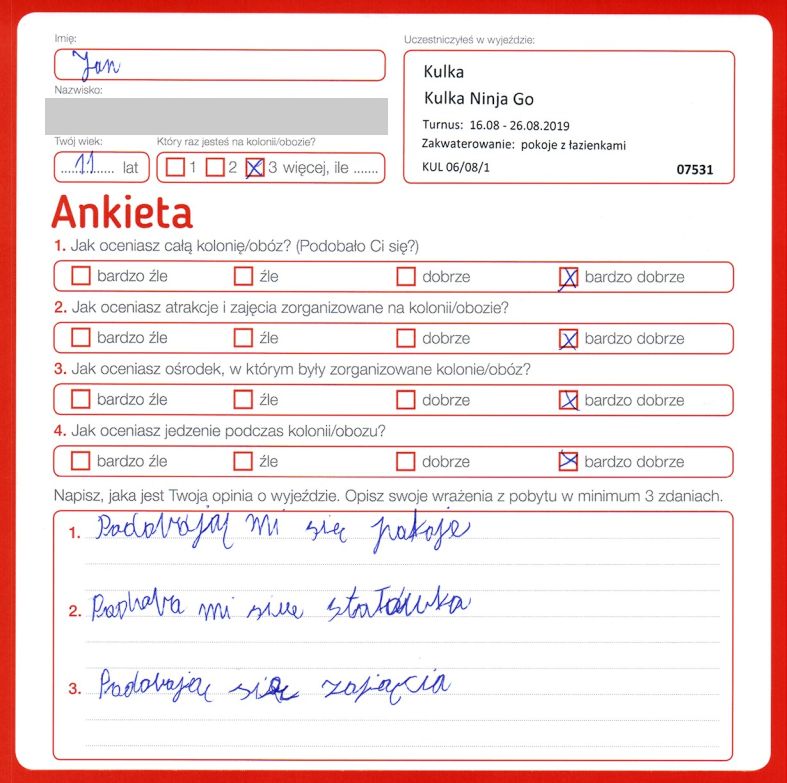 Imię:
Jan
Nazwisko:
Twój wiek:
11 lat
Który raz jesteś na kolonii/obozie?
1 2 3 więcej, ile .......
Uczestniczyłeś w wyjeździe:
Kulka
Kulka Ninja Go
Turnus: 16.08 - 26.08.2019
Zakwaterowanie: pokoje z łazienkami
KUL 06/08/1 07531
Ankieta
1. Jak oceniasz całą kolonię/obóz? (Podobało Ci się?)
bardzo źle źle dobrze bardzo dobrze
2. Jak oceniasz atrakcje i zajęcia zorganizowane na kolonii/obozie?
bardzo źle źle dobrze bardzo dobrze
3. Jak oceniasz ośrodek, w którym były zorganizowane kolonie/obóz?
bardzo źle źle dobrze bardzo dobrze
4. Jak oceniasz jedzenie podczas kolonii/obozu?
bardzo źle źle dobrze bardzo dobrze
Napisz, jaka jest Twoja opinia o wyjeździe. Opisz swoje wrażenia z pobytu w minimum 3 zdaniach.
1. Podobają mi się pokoje
2. mi się stołówka
3. Podobają się zajęcia